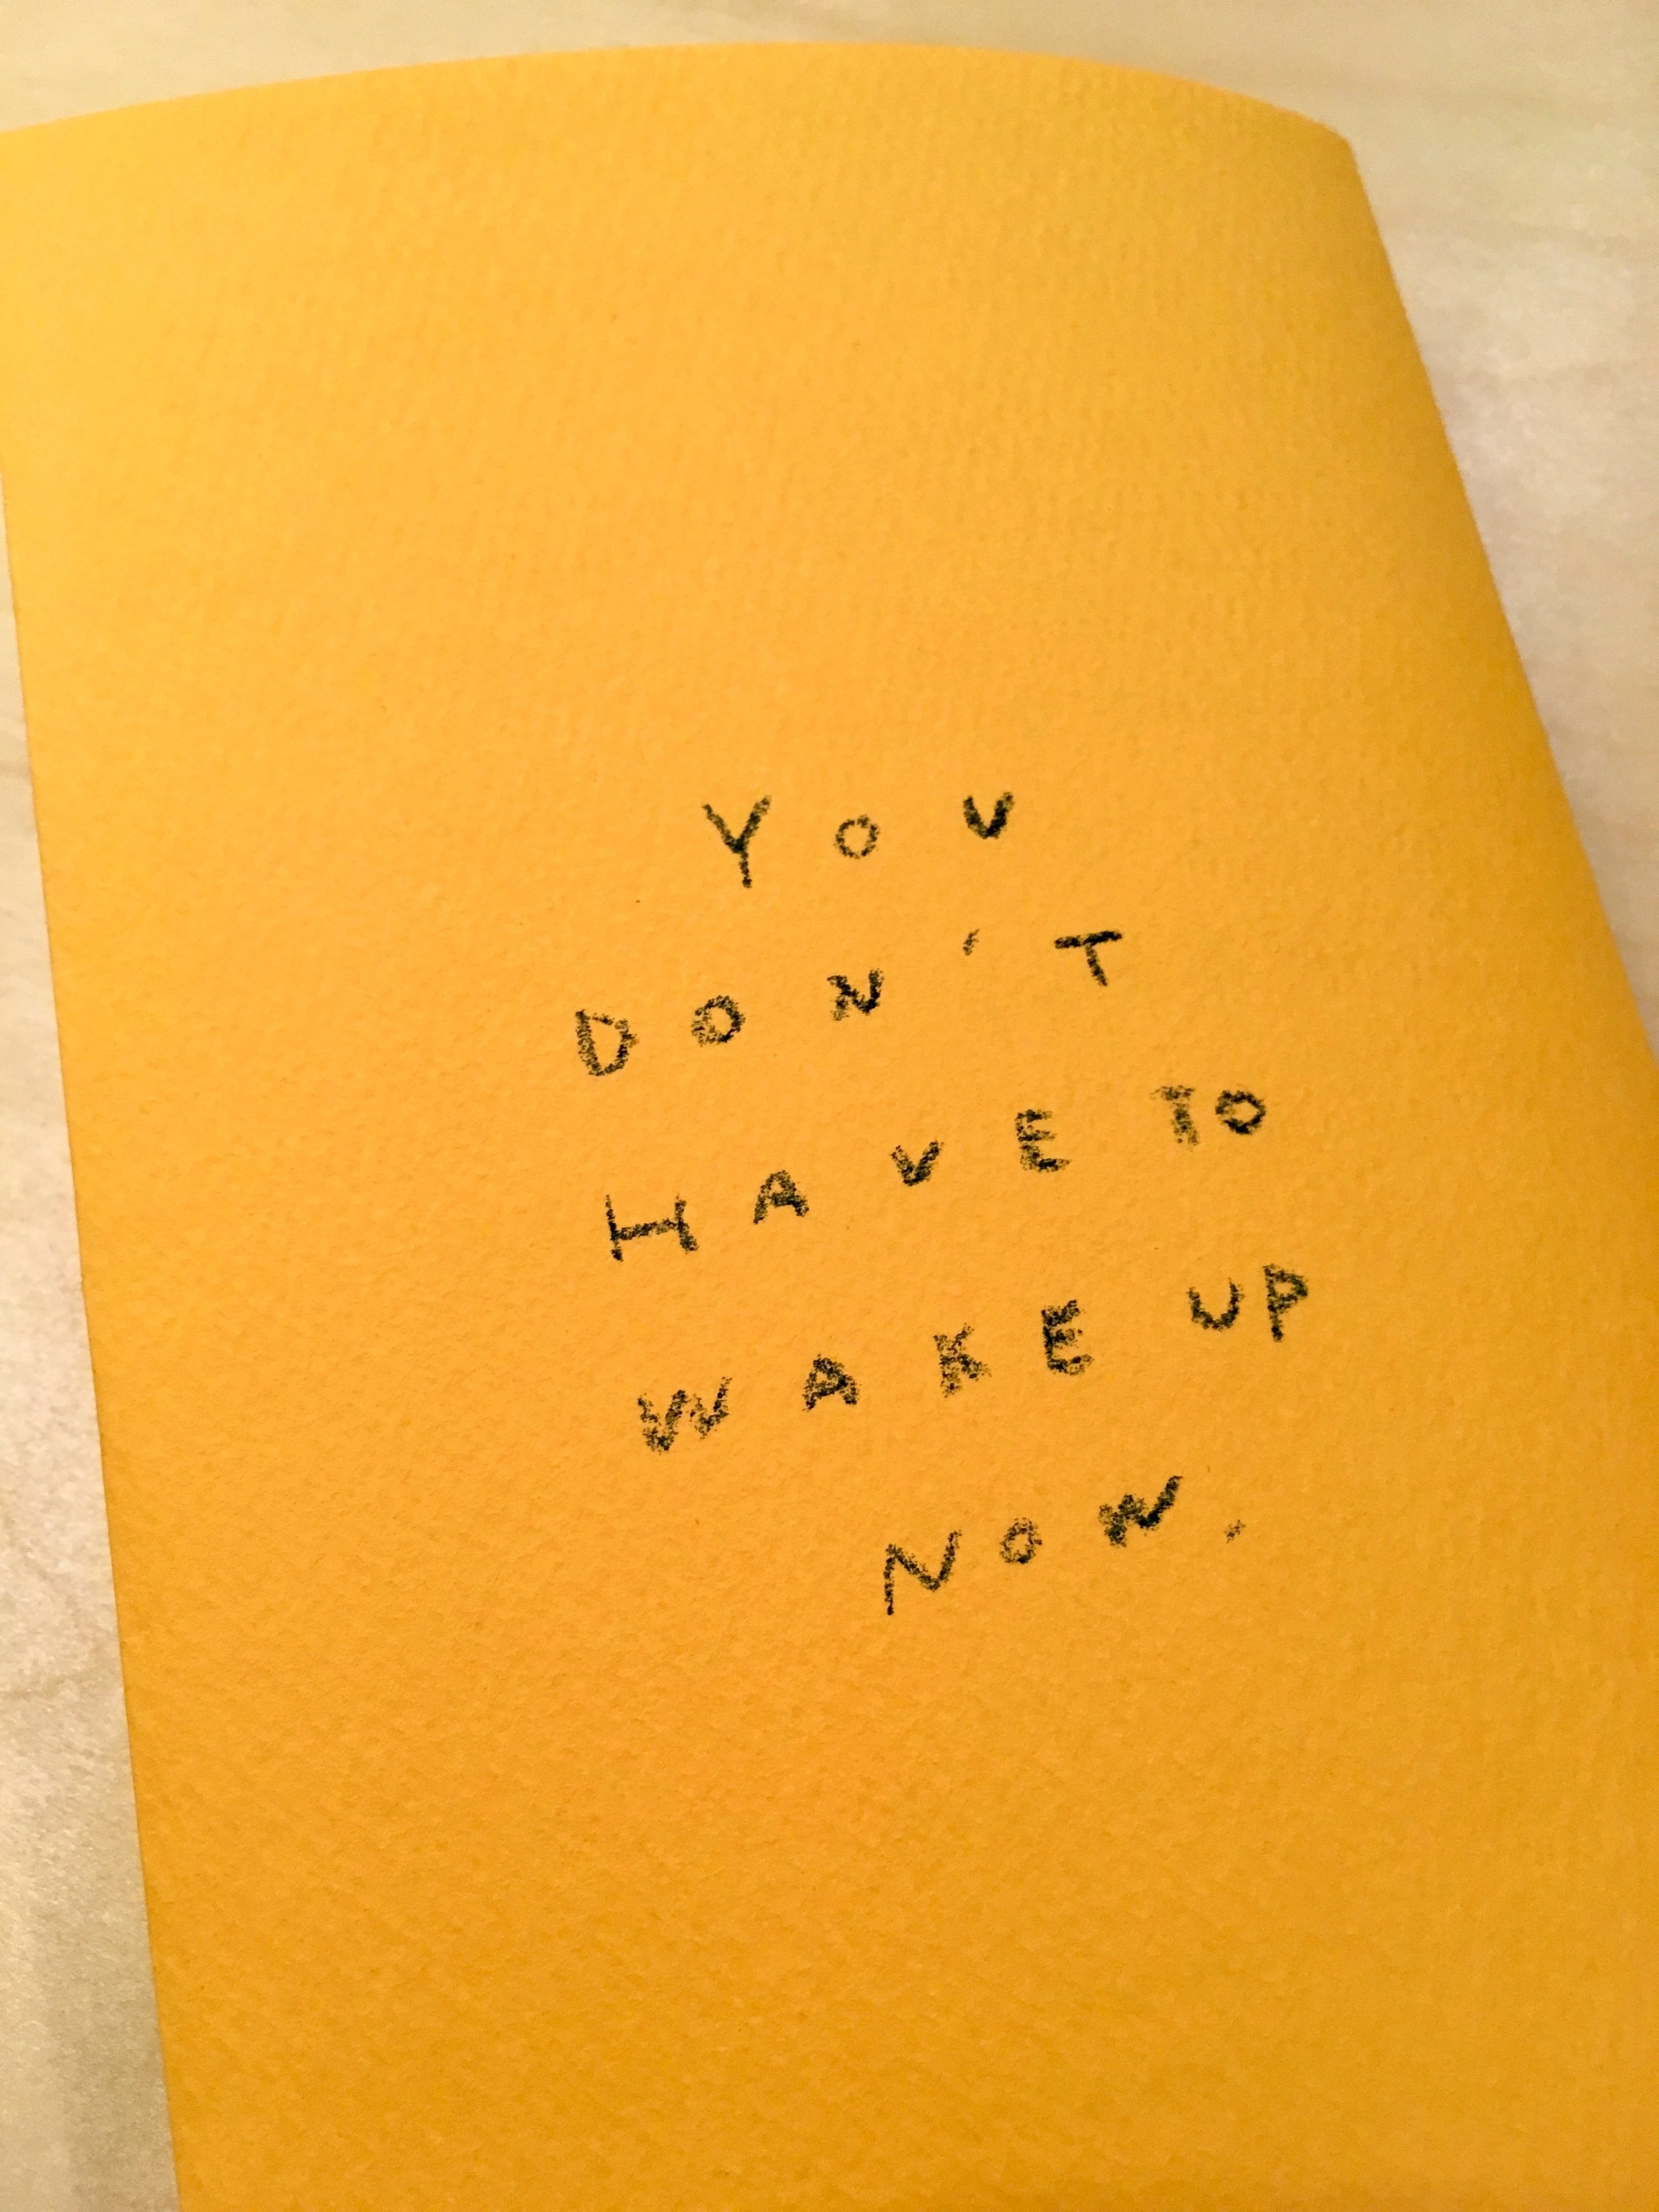 YOU
DON'T
HAVE TO
WAKE UP
NOW.